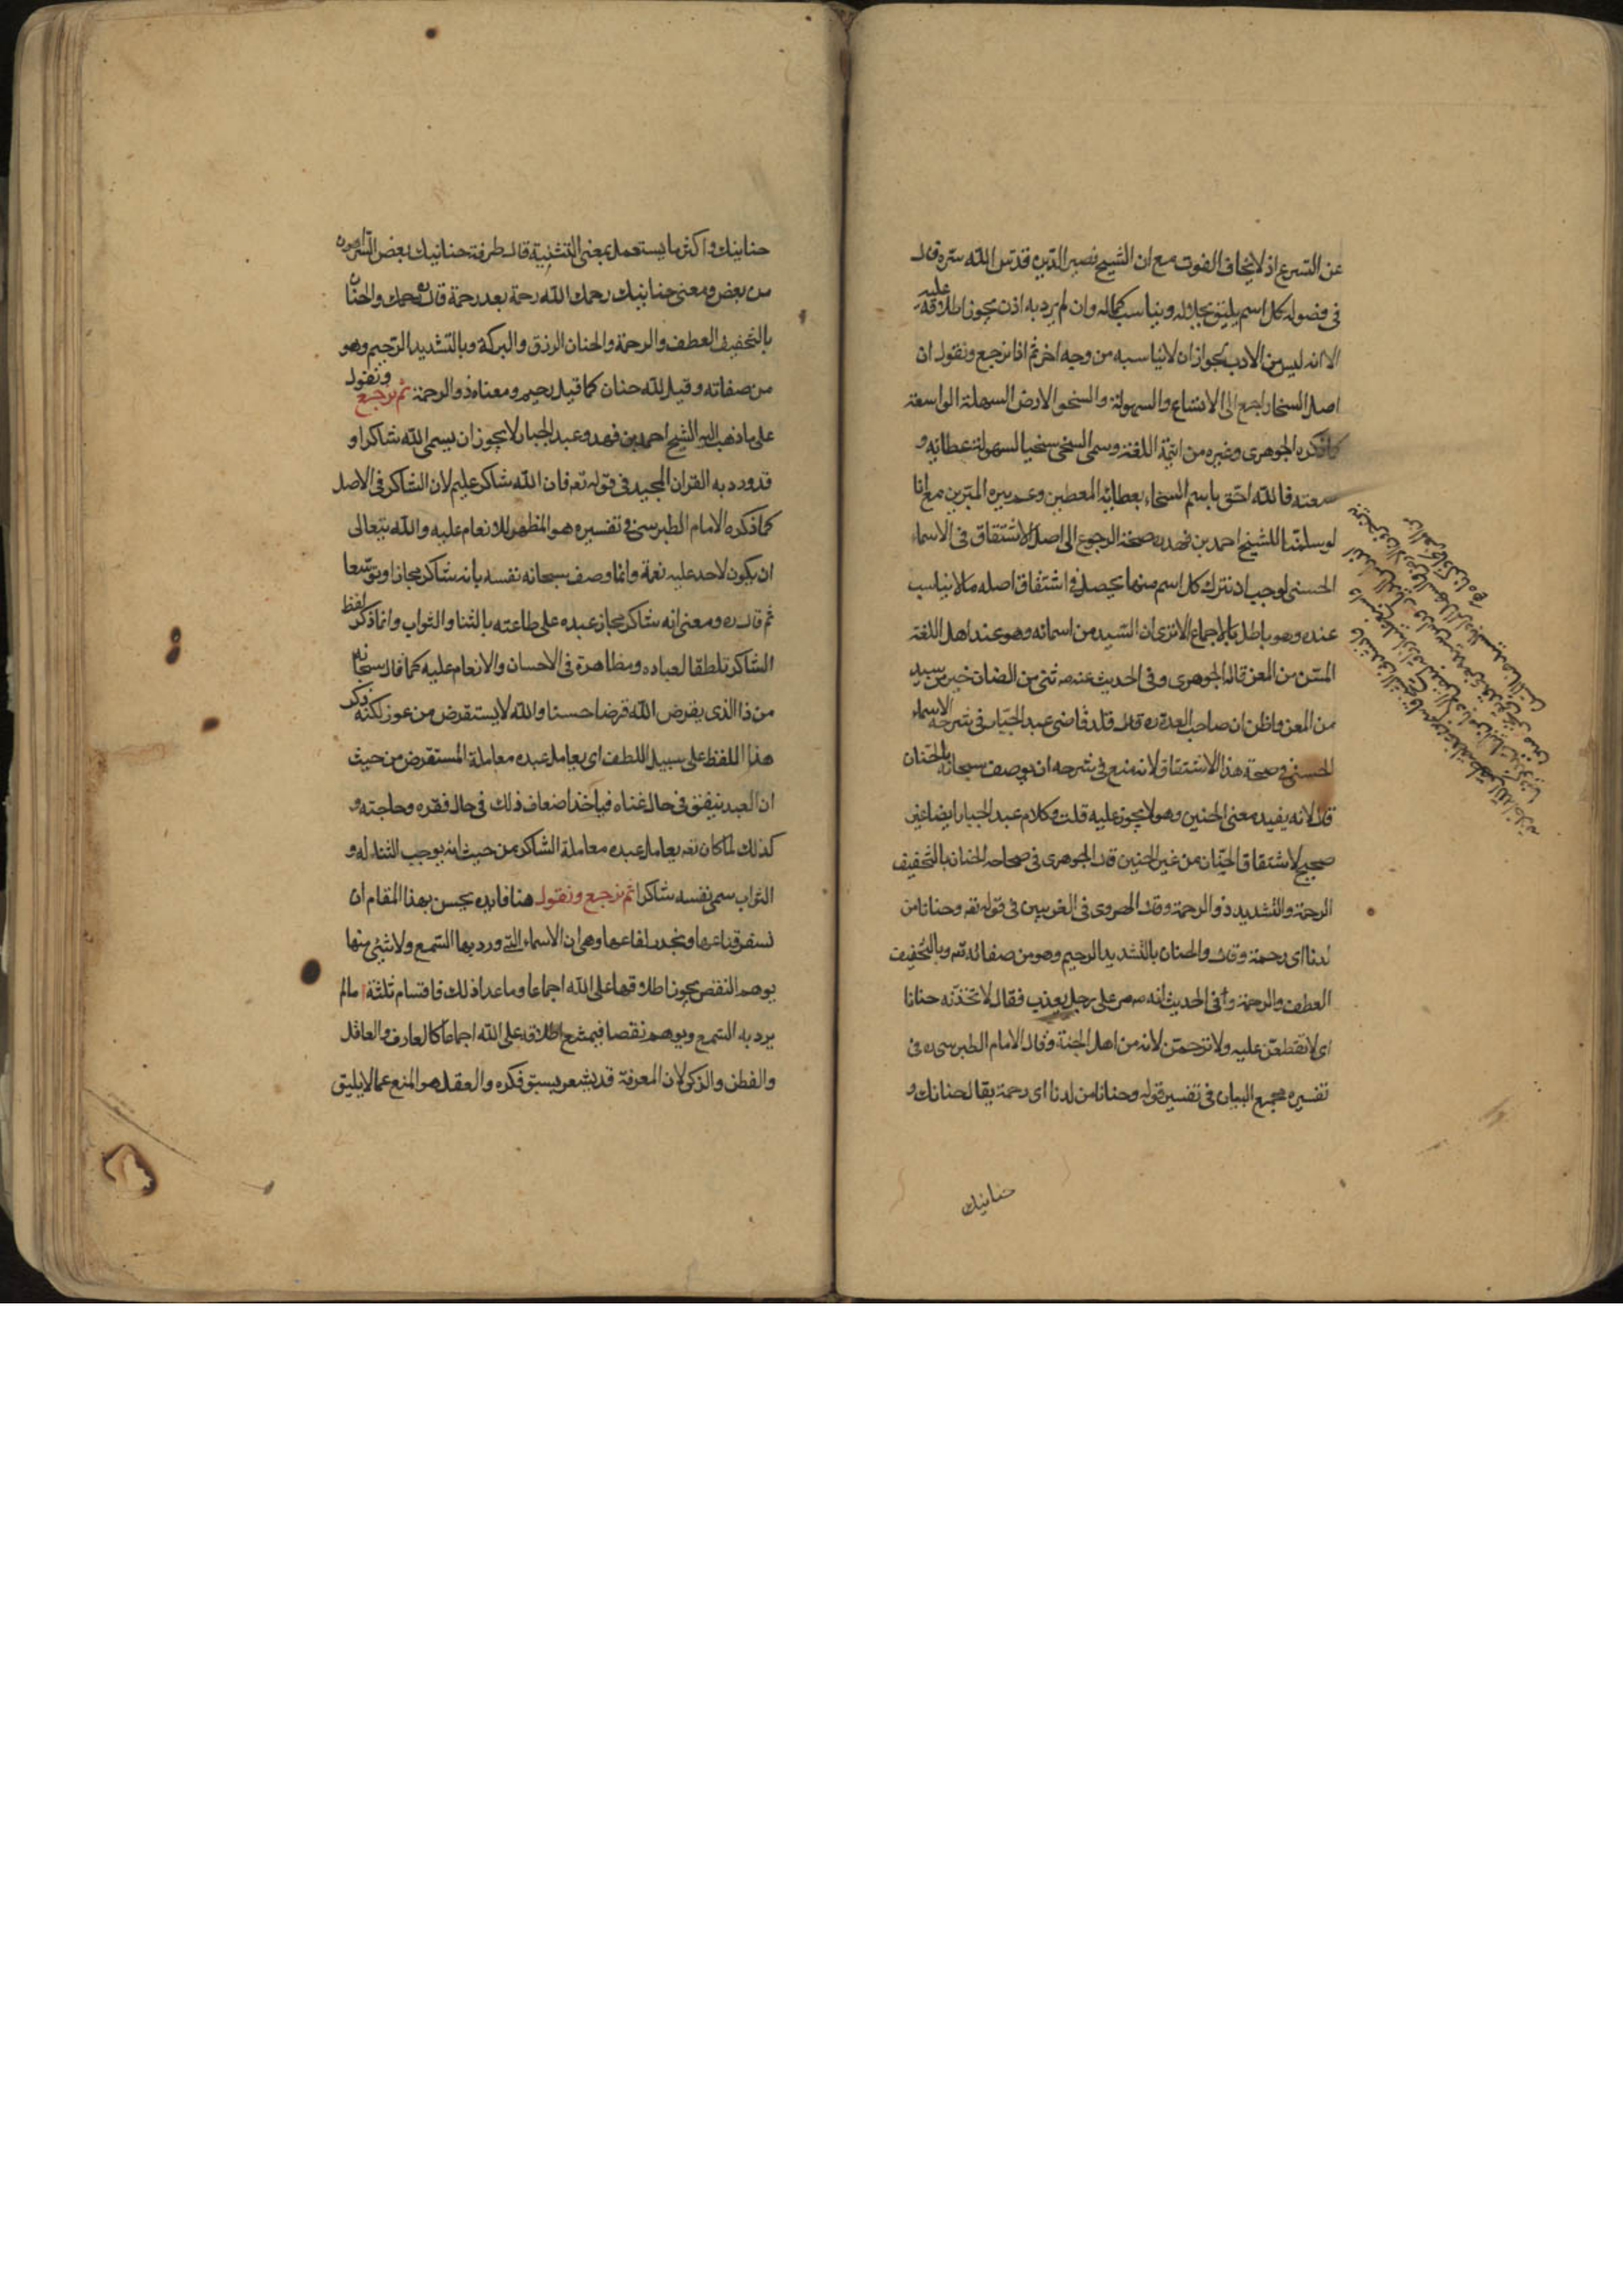 عن التسرع اذ لا يخاف الفوت مع ان الشيخ نصير الدين قدس الله سره قال
فى فصوله كل اسم يليق بجلاله ويناسب كماله وان لم يرد به اذن يجوز اطلاقه عليه
الا انه ليس من الادب لجواز ان لا يناسبه من وجه اخر ثم انا نرجع ونقول ان
اصل السخا راجع الى الاتساع والسهولة والسخو الارض السهلة الواسعة
كما ذكره الجوهرى وغيره من ائمة اللغة وسمى السخى سخيا لسهولة عطائه و
سعته فالله احق باسم السخاء بعطائه المعطين وعم ببره المبرين مع انا
لو سلمنا للشيخ احمد بن فهد ره صحة الرجوع الى اصل الاشتقاق فى الاسماء
الحسنى لوجب ان نترك كل اسم منها يحصل فى اشتقاق اصله ما لا يناسب
عنده وهو باطل بالاجماع الا ترى ان السيد من اسمائه وهو عند اهل اللغة
المسن من المعز قاله الجوهرى وفى الحديث عنه ص ثنى من الضان خير من سيد
من المعز واظن ان صاحب العدة ره قلد قاضى عبد الجبار فى شرحه الاسماء
الحسنى فى صحة هذا الاشتقاق لانه منع فى شرحه ان يوصف سبحانه بالحنان
قال لانه يفيد معنى الحنين وهو لا يجوز عليه قلت وكلام عبد الجبار ايضا غير
صحيح لاشتقاق الحنان من غير الحنين قال الجوهرى فى صحاحه الحنان بالتخفيف
الرحمة والتشديد ذو الرحمة وقال الهروى فى الغريبين فى قوله تعه وحنانا من
لدنا اى رحمة وقال والحنان بالتشديد الرحيم وهو من صفاته تعه وبالتخفيف
العطف والرحمة وفى الحديث انه ص مر على رجل يعذب فقال لاتخذنه حنانا
اى لا تعطفن عليه ولا ترحمن لانه من اهل الجنة وقال الامام الطبرسى ره فى
تفسيره مجمع البيان فى تفسير قوله وحنانا من لدنا اى رحمة يقال حنانك و
حنانيك
حنانيك واكثر ما يستعمل بمعنى التثنية قال طرفة حنانيك بعض الشر اهون
من بعض ومعنى حنانيك رحمك الله رحمة بعد رحمة والحنان
بالتخفيف العطف والرحمة والحنان الرزق والبركة وبالتشديد الرحيم وهو
من صفاته وقيل لله حنان كما قيل رحيم ومعناه ذو الرحمة ثم نرجع ونقول
على ما ذهب اليه الشيخ احمد بن فهد وعبد الجبار لا يجوز ان يسمى الله شاكرا و
قد ورد به القران المجيد فى قوله تعه فان الله شاكر عليم لان الشاكر فى الاصل
كما ذكره الامام الطبرسى فى تفسيره هو المظهر للانعام عليه والله يتعالى
ان يكون لاحد عليه نعمة وانما وصف سبحانه نفسه بانه شاكر مجازا وتوسعا
ثم قال ره ومعنى انه شاكر مجاز عبده على طاعته بالثنا والثواب وانما ذكر لفظ
الشاكر تلطفا لعباده ومظاهرة فى الاحسان والانعام عليه كما قال سبحانه
من ذا الذى يقرض الله قرضا حسنا والله لا يستقرض من عوز لكنه ذكر
هذا اللفظ على سبيل اللطف اى يعامل عبده معاملة المستقرض من حيث
ان العبد ينفق فى حال غناه فياخذ اضعاف ذلك فى حال فقره وحاجته و
كذلك لما كان تعه يعامل عبده معاملة الشاكر من حيث انه يوجب الثناء له و
الثواب سمى نفسه شاكرا ثم نرجع ونقول هنا فايده يحسن بهذا المقام ان
نسفر قناعها ونحدر لفاعها وهى ان الاسماء التى ورد بها السمع ولا شىء منها
يوهم النقص يجوز اطلاقها على الله اجماعا وما عدا ذلك فاقسام ثلثة ا ما لم
يرد به السمع ويوهم نقصا فيمتنع اطلاقه على الله اجماعا كالعارف والعاقل
والفطن والذكى لان المعرفة قد يشعر بسبق فكره والعقل هو المنع عما لا يليق